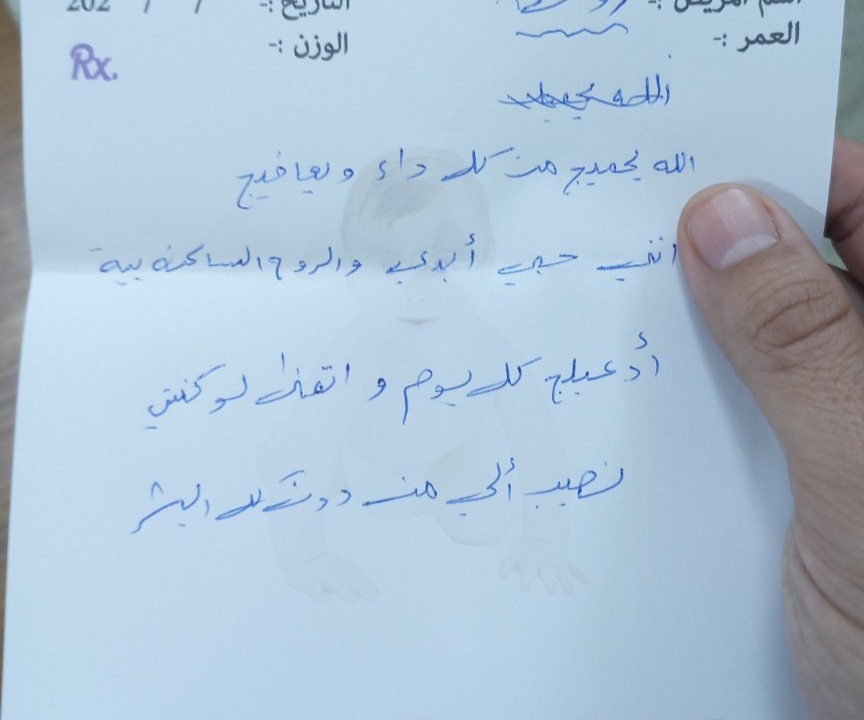 اسم المريض :- التاريخ :- / / 202
العمر :- الوزن :-
Rx.
الله
الله يحميج من كل داء ويعافيج
انتي حبي أبدي والروح الساكنه بية
أدعيلج كل يوم و اتمنا لو كنتي
نصيب ألي من دون كل البشر